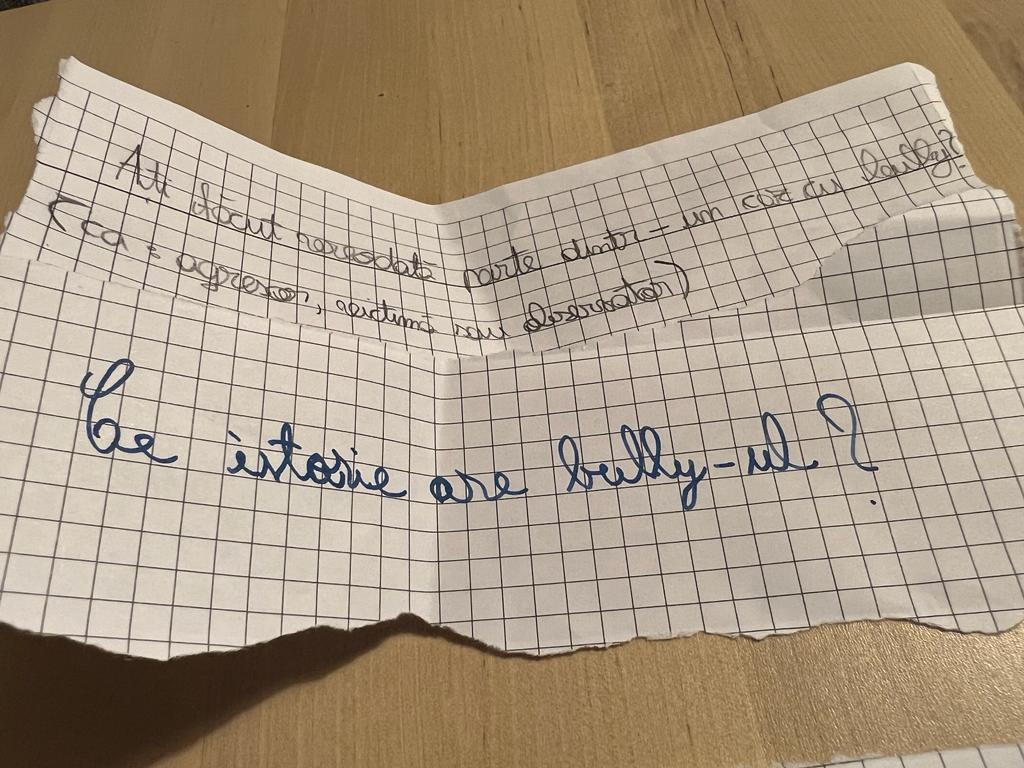 Ați făcut vreodată parte dintr-un caz cu bully?
(ca: agresor, victimă sau observator)
Ce istorie are bully-ul?